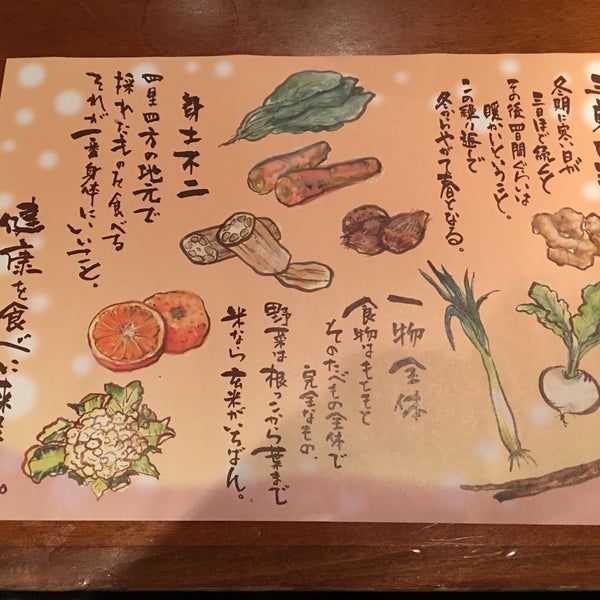 三寒四
冬期に寒い日が
三日ほど続くと
その後四日間ぐらいは
暖かいということ。
この繰り返しで
冬からやがて春となる。
一物全体
食物はもともと
そのたべもの全体で
完全なもの、
野菜は根っこから葉まで
米なら玄米がいちばん。
身土不二
四里四方の地元で
採れたものを食べる
それが一番身体にいいこと。
健康を食べに